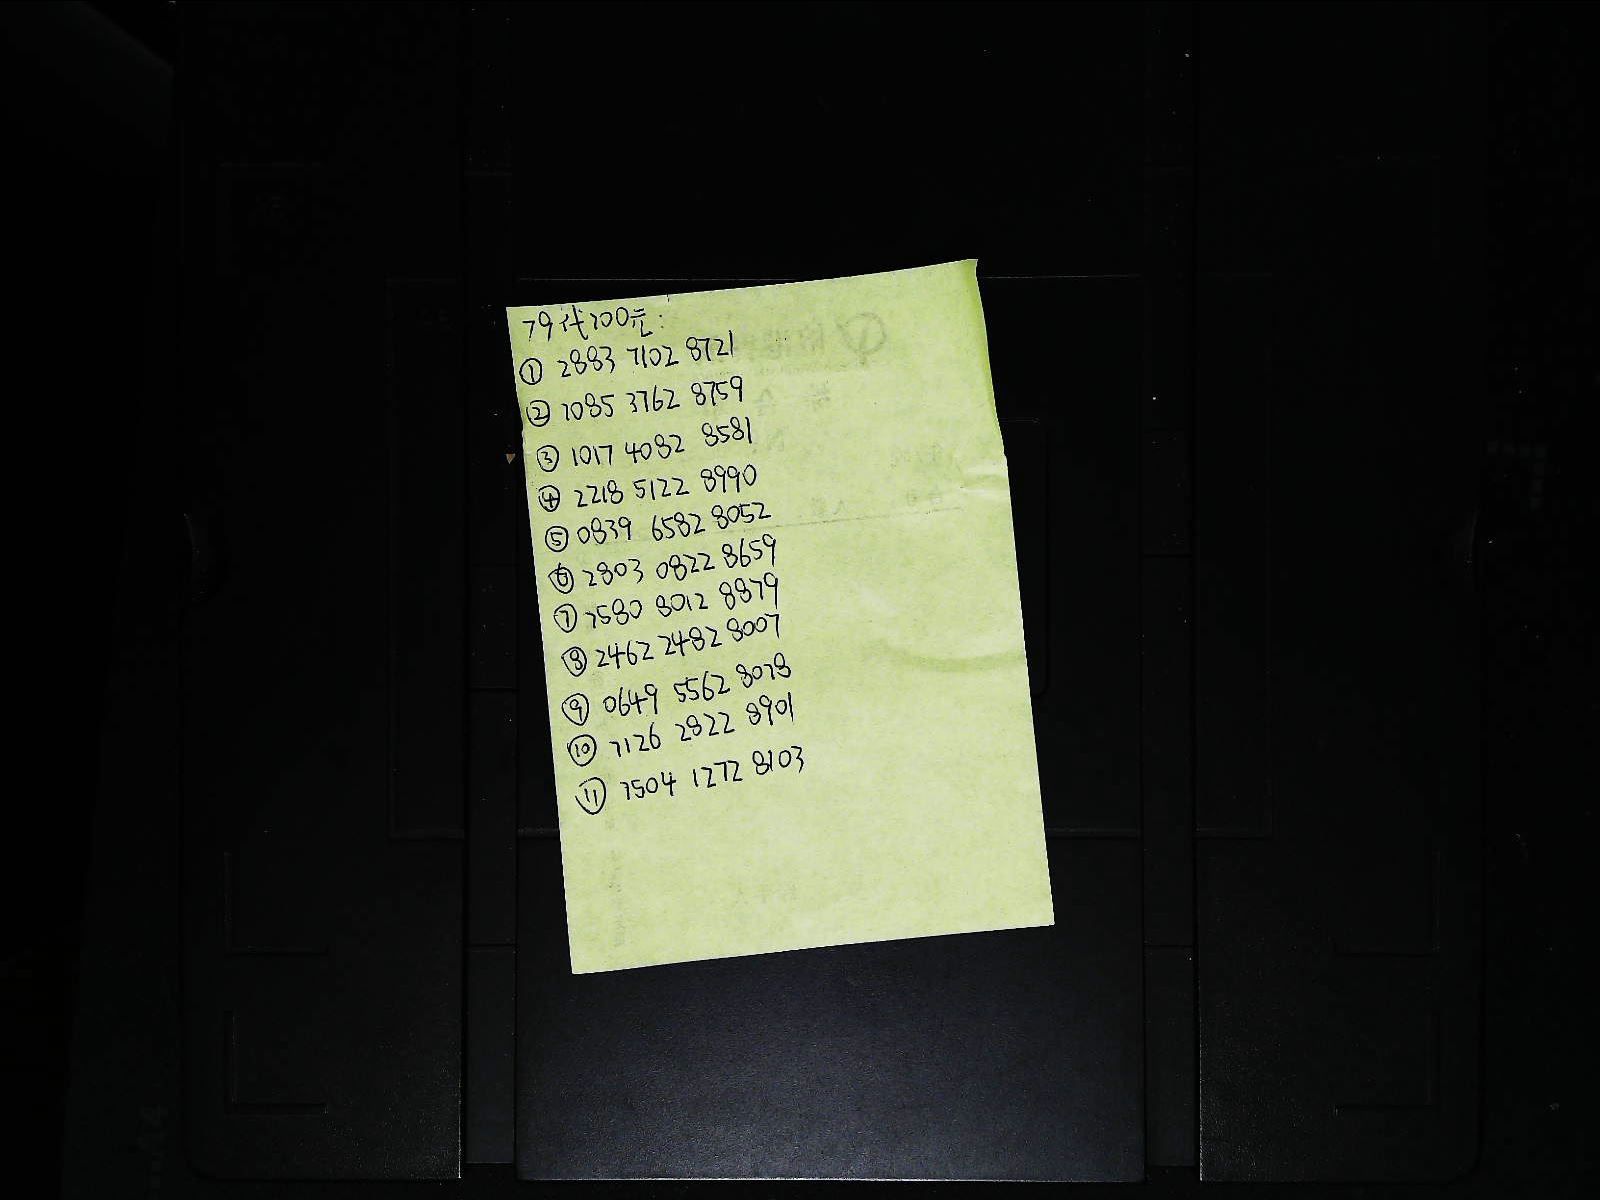 79代100元:
① 2883 7102 8721
② 1085 3762 8759
③ 1017 4082 8581
④ 2218 5122 8990
⑤ 0839 6582 8052
⑥ 2803 0822 8659
⑦ 7580 8012 8879
⑧ 2462 2482 8007
⑨ 0649 5562 8078
⑩ 7126 2822 8901
⑪ 7504 1272 8103